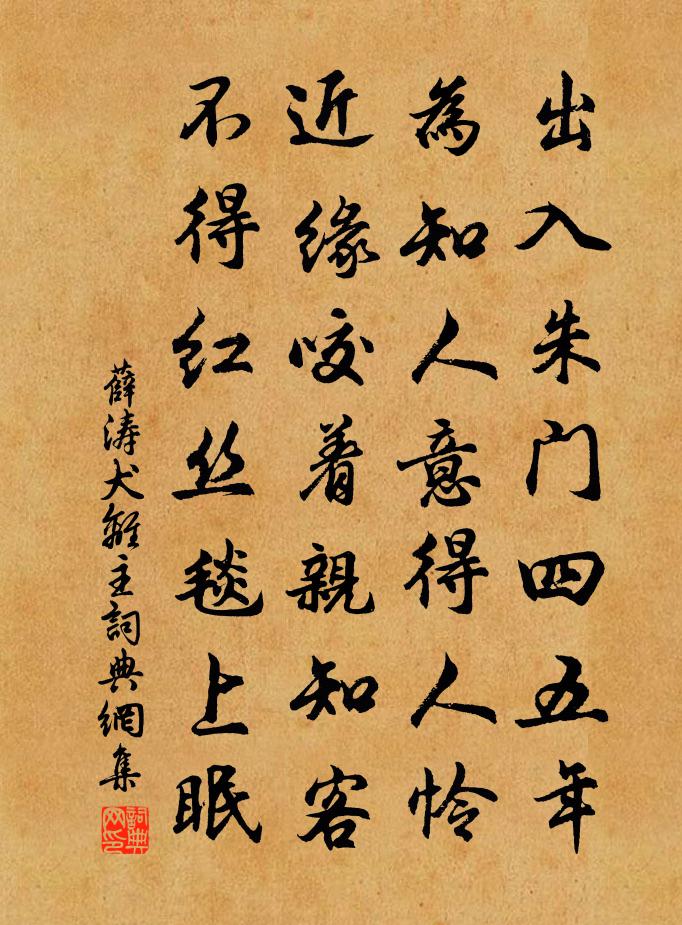 出入朱门四五年
為知人意得人怜
近缘咬着親知客
不得红丝毯上眠
薛涛犬離主詞典網集
詞典网印